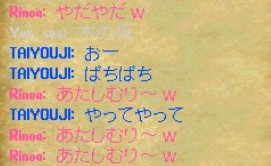 Rinoa: やだやだｗ
You see:
TAIYOUJI: おー
TAIYOUJI: ぱちぱち
Rinoa: あたしむり～ｗ
TAIYOUJI: やってやって
Rinoa: あたしむり～ｗ
Rinoa: あたしむり～ｗ